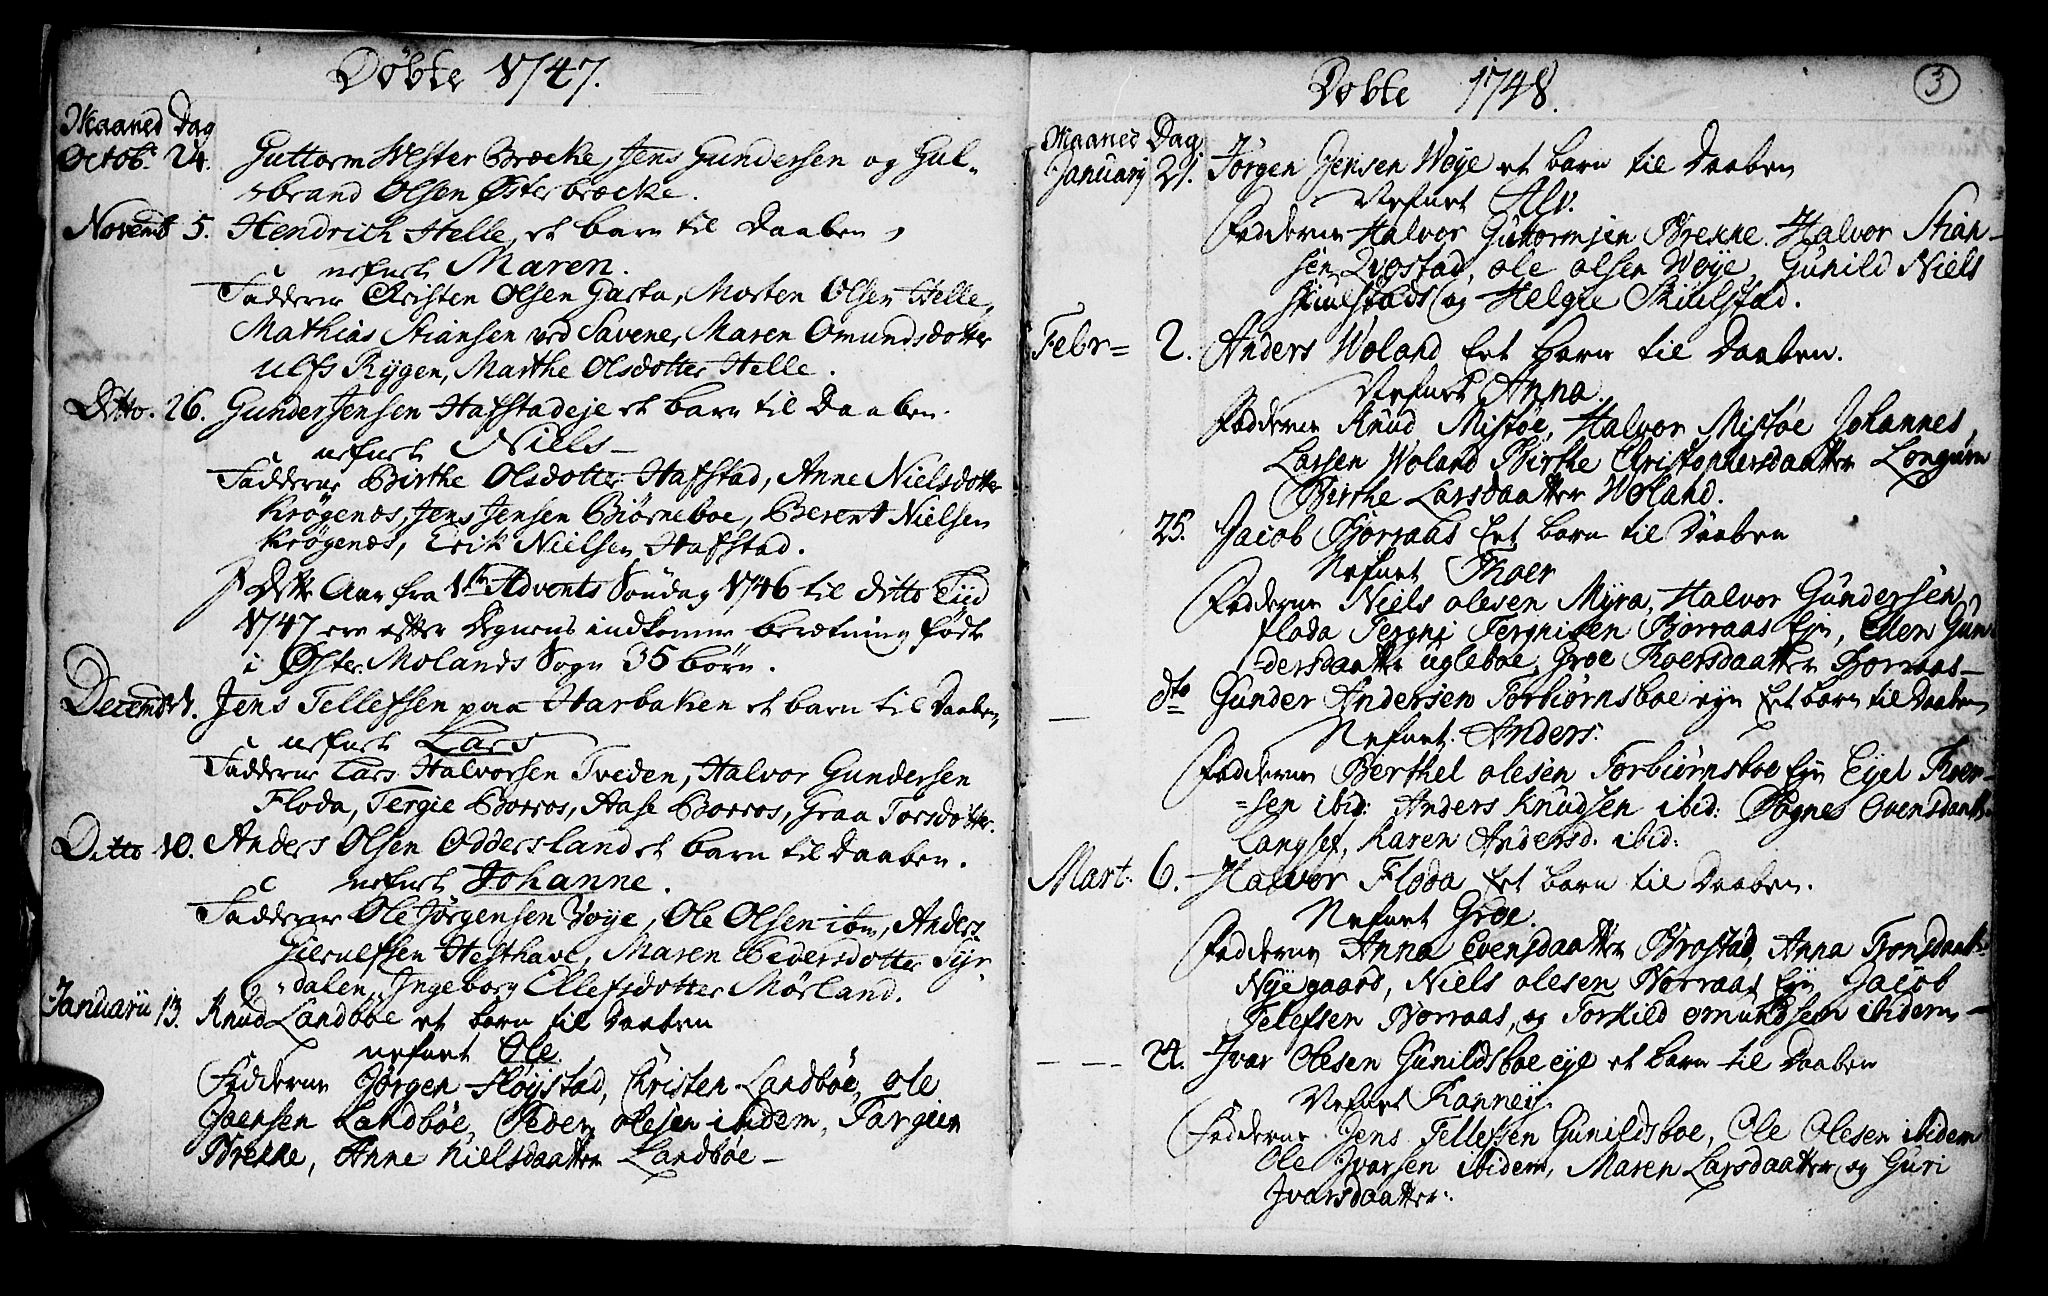 Döbte 1747.
Maaned Dag
Octob. 24. Guttorm Wester Brœcke, Jens Gundersen og Gul-
-brand Olsen Øster brœcke.
Novemb 5. Hendrich Helle, et barn til Daaben,
nefnt Maren.
Fadderne Christen Olsen Garta, Morten Olsen Helle,
Mathias Stiansen ved Savene, Maren Omundsdotter
Ulfs Rygen, Marthe Olsdotter Helle.
Ditto. 26. Gunder Jensen Hafstadeje et barn til Daaben.
nefnt Niels-
Fadderne Birthe Olsdotter Hafstad, Anne Nielsdotter
Krøgenæs, Jens Jensen Biørneboe, Berent Nielsen
Krøgenæs, Erik Nielsen Hafstad.
Dette Aar fra 1te Advents Søndag 1746 til ditto Tiid
1747 ere efter Degnens indkomne beretning fødte
i Øster Molands Sogn 35 børn.
Decemb 1. Jens Tellefsen paa Harbakken et barn til Daaben,
nefnt Lars
Fadderne Lars Halvorsen Tveden, Halvor Gundersen
Floda, Tergie Borros, Aase Borros, Graa Torsdotter.
Ditto 10. Anders Olsen Oddersland et barn til Daaben.
nefnt Johanne.
Fadderne Ole Jørgensen Voye, Ole Olsen ibm, Anders
Gierulfsen Hesthave, Maren Siversdotter Tyr-
-dalen, Ingeborg Ellefsdotter Mørland.
Januarii 13. Knud Landbøe et barn til Daaben
nefnt Ole.
Fadderne Jørgen Høystad, Christen Landbøe, ole
Joensen Landbøe, Peder olesen ibidem, Targein
Brekke, Anne Nielsdaatter Landbøe-
Döbte 1748.
3
Maaned Dag
Januarij 21. Jørgen Jensen Woye et barn til Daaben
Nefnt Alv.
Fadderne Halvor Guttormsen Brekke, Halvor Stian-
sen Qvostad, ole olsen Woye, Gunild Niels
Skiulstads og Helge Skiulstad.
Febr= 2. Anders Woland Eet barn til Daaben.
Nefnt Anna.
Fadderne Knud Mistøe, Halvor Mistøe Johannes,
Larsen Woland Birthe Christophersdaatter Longum
Birthe Larsdaatter Woland.
25. Jacob Borraas Eet barn til Daaben
Nefnt Thoer
Fadderne Niels olesen Myra, Halvor Gundersen
floda Tergni Tergnisen Borraas Eyn, Ellen Gun-
-dersdaatter ugleboe, Groe Thoersdaatter Borraas-
- dto Gunder Andersen Torbiørnsboe eyn Eet barn til Daaben
Nefnt. Anders.
Fadderne Berthel olesen Torbiørnsboe Eyn Eyel Thoer-
-sen ibid: Anders Knudsen ibid: Aognes Evensdaatter
Langsef, Karen Andersd. ibid:
Mart: 6. Halvor Floda Eet barn til Daaben.
Nefnt Groe.
Fadderne Anna Evensdaatter Brostad, Anna Tronsdaatter
Nyegaard, Niels olesen Borraas Eyn Jacob
Telefsen Borraas, og Torkild omundsen ibidem-
- - - 24. Ivar Olesen Gunildsboe eye et barn til Daaben
Nefnt Ranney.
Fadderne. Jens Tellefsen Gunildsboe, Ole Olesen ibidem
Ole Ivarsen ibidem, Maren Larsdaatter og Guri
Ivarsdaatter.